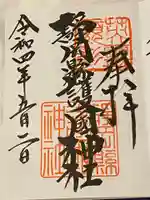 奉拝
静岡縣護國神社
令和四年五月二日